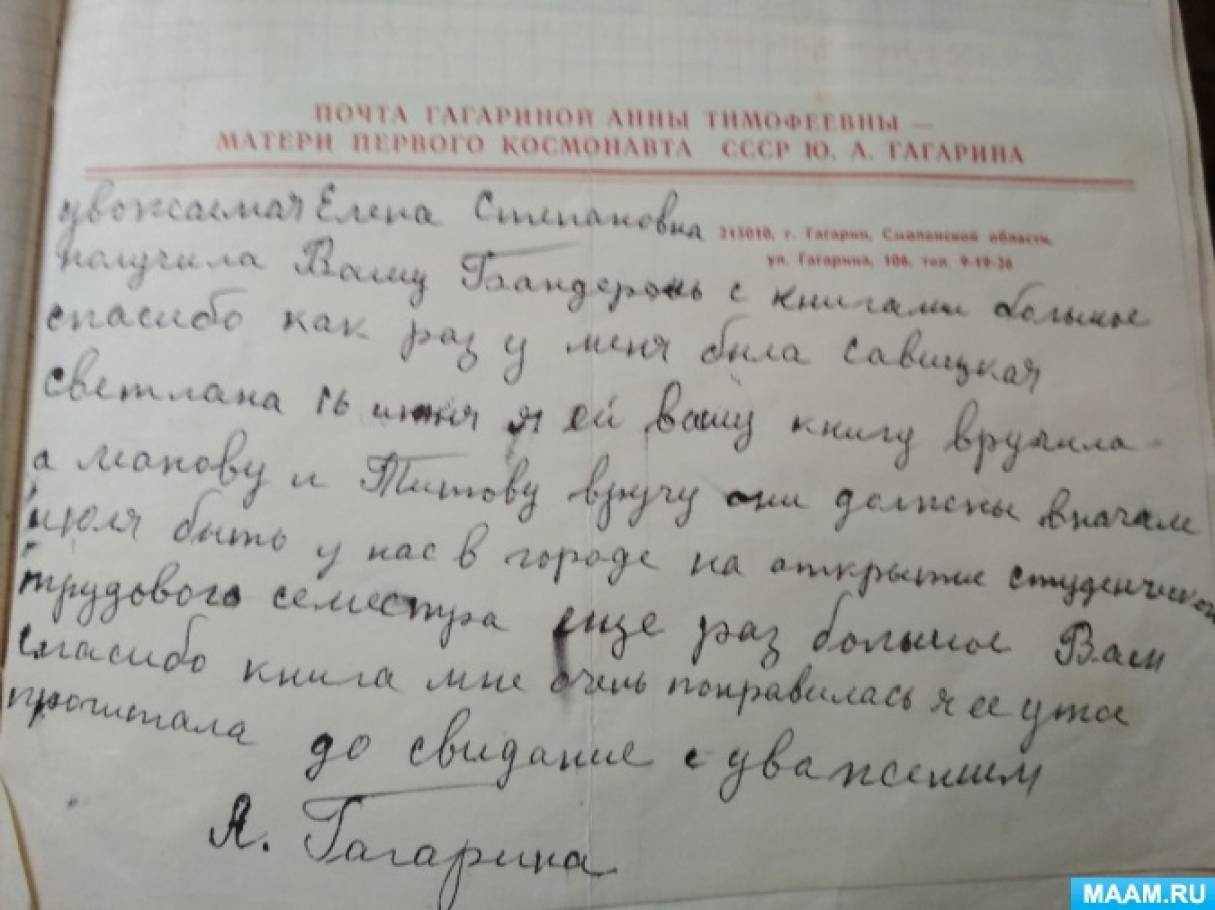 ПОЧТА ГАГАРИНОЙ АННЫ ТИМОФЕЕВНЫ —
МАТЕРИ ПЕРВОГО КОСМОНАВТА СССР Ю. А. ГАГАРИНА
уважаемая Елена Степановна
215010, г. Гагарин, Смоленской области,
ул. Гагарина, 106, тел. 9-19-26
получила Вашу Бандероль с книгами большое
спасибо как раз у меня была Савицкая
светлана 16 июня я ей вашу книгу вручила
а и Титову вручу они должны вначале
июля быть у нас в городе на открытие студенческого
трудового семестра еще раз большое Вам
спасибо книга мне очень понравилась я ее уже
прочитала до свидание с уважением
А. Гагарина
MAAM.RU